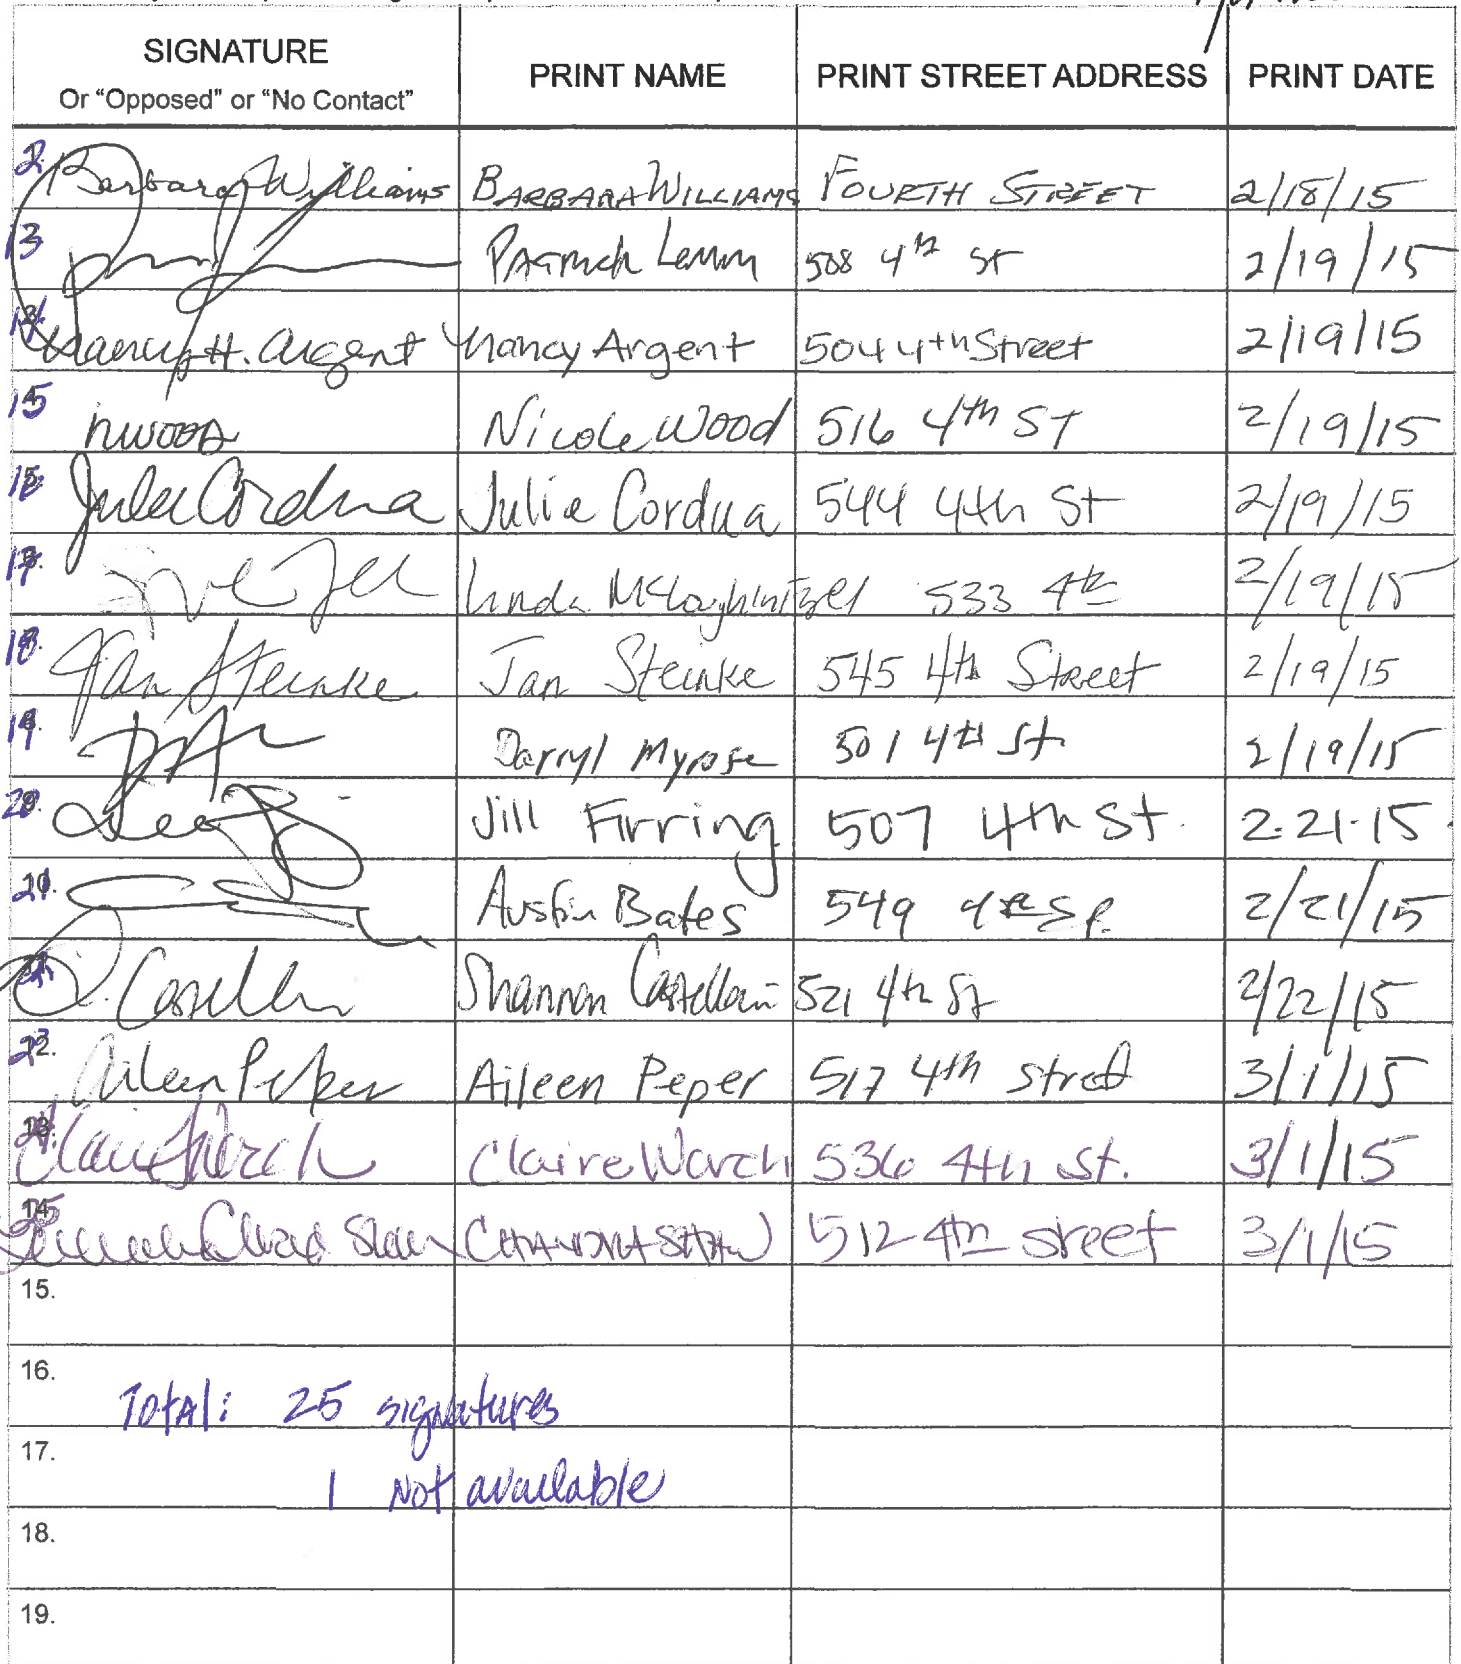 SIGNATURE
Or "Opposed" or "No Contact"
PRINT NAME
PRINT STREET ADDRESS
PRINT DATE
2. Barbara Williams BARBARA WILLIAMS FOURTH STREET 2/18/15
13 508 4th St 2/19/15
14 Nancy H. Argent Nancy Argent 504 4th Street 2/19/15
15 nwood Nicole Wood 516 4th ST 2/19/15
16 Julie Cordua Julie Cordua 544 4th St 2/19/15
17 Linda 533 4th 2/19/15
18 Jan Steinke Jan Steinke 545 4th Street 2/19/15
19 Darryl Myrose 501 4th St. 2/19/15
20 Jill Firring 507 4th St. 2.21.15
21 Austin Bates 549 4th St. 2/21/15
Shannon 521 4th St 2/22/15
23 Aileen Peper Aileen Peper 517 4th street 3/1/15
Claire Warch 536 4th St. 3/1/15
25 CHANDRA SHAW 512 4th street 3/1/15
15.
16.
Total: 25 signatures
17.
1 Not available
18.
19.